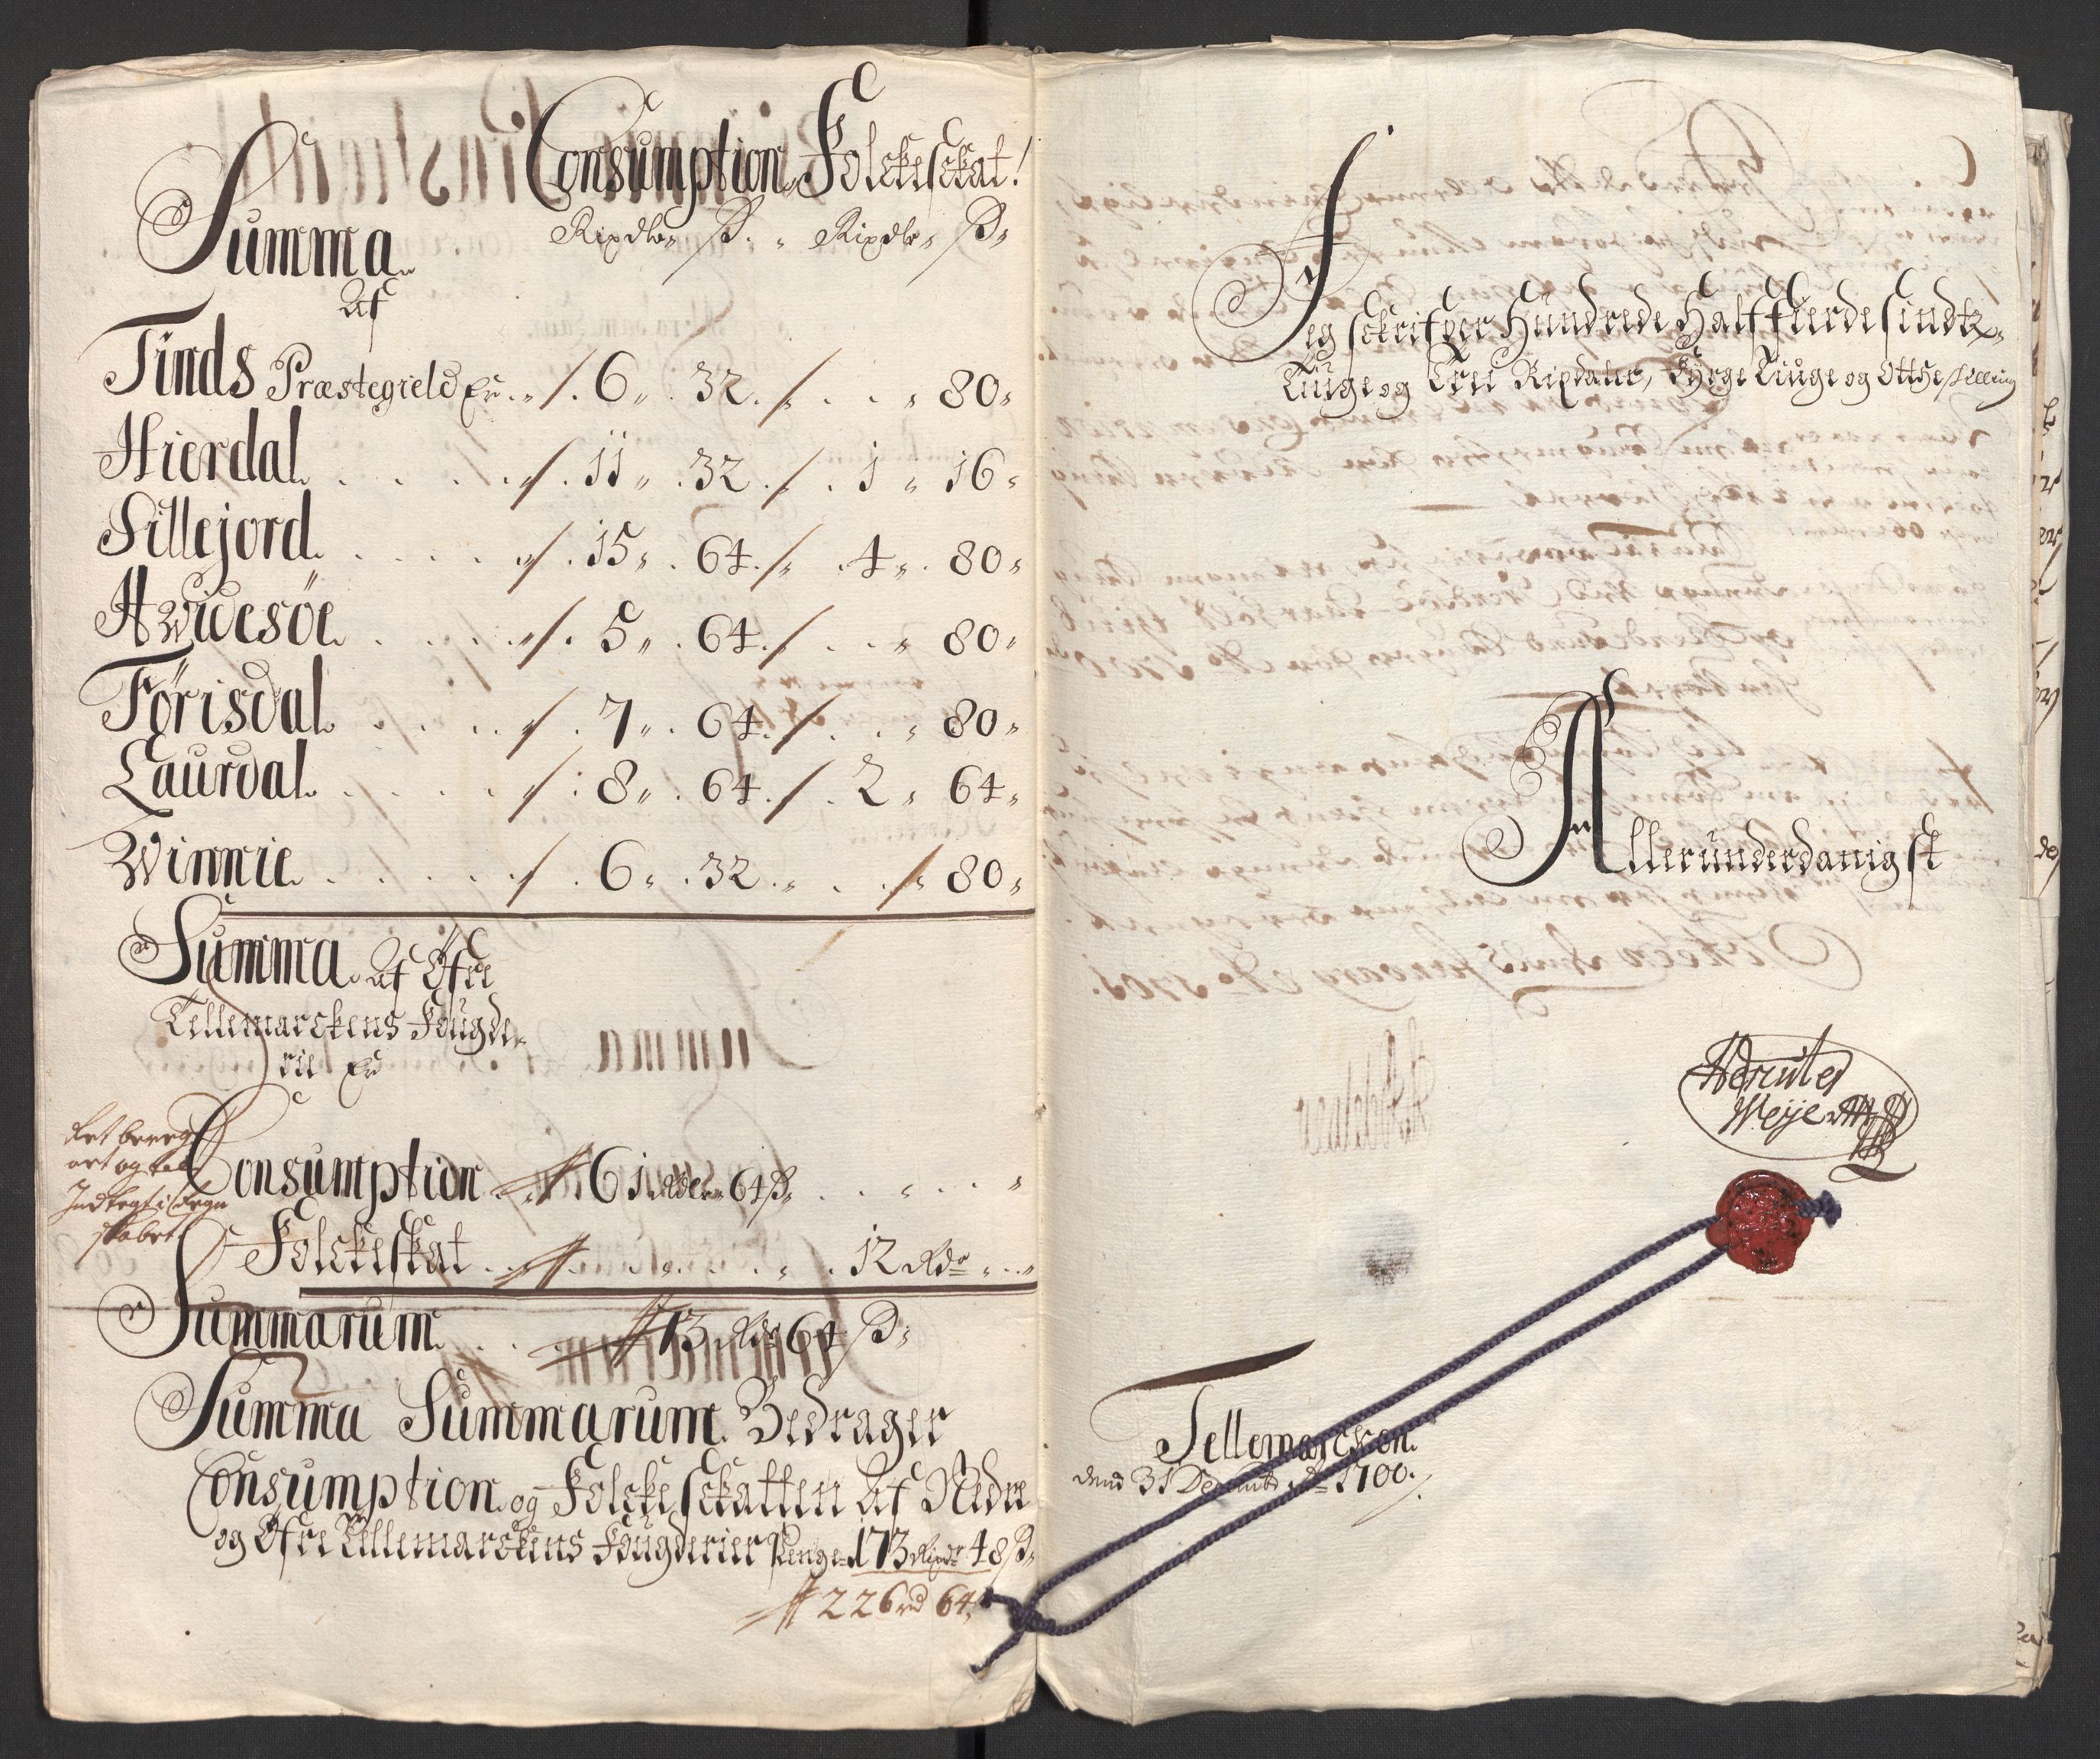 Consumption, Folckesckat!
Rixdlr, ß. Rixdlr, ß,
Summa
Af
Tinds Præstegield Er 6 32 80
Hierdal 11 32 1 16
Sillejord 15 64 4 80
Hwidesöe 5 64 80
Förisdal 7 64 80
Laurdal 8 64 2 64
Winnie 6 32 80
Summa Af Öfre
Tellemarckens Fougde
rie Er
Consumption 61 Rdlr 64 ß
Folckeskat 12 Rdr
Summarum 73 Rdr 64 ß
Summa Summarum Bedrager
Consumption og Folckesckatten Af Nedre
og Öfre Tellemarckens Fougderier Penge 173 Rixdr 48 ß
226 rd 64
Jeg sckrifver Hundrede Halffierdesindtz
Tiuge og Trei Rixdaler, Fyrge Tiuge og Otthe Skilling
Allerunderdanigst
Hercules
Weyer
Tellemarcken
dend 31 Decemb Ao 1700